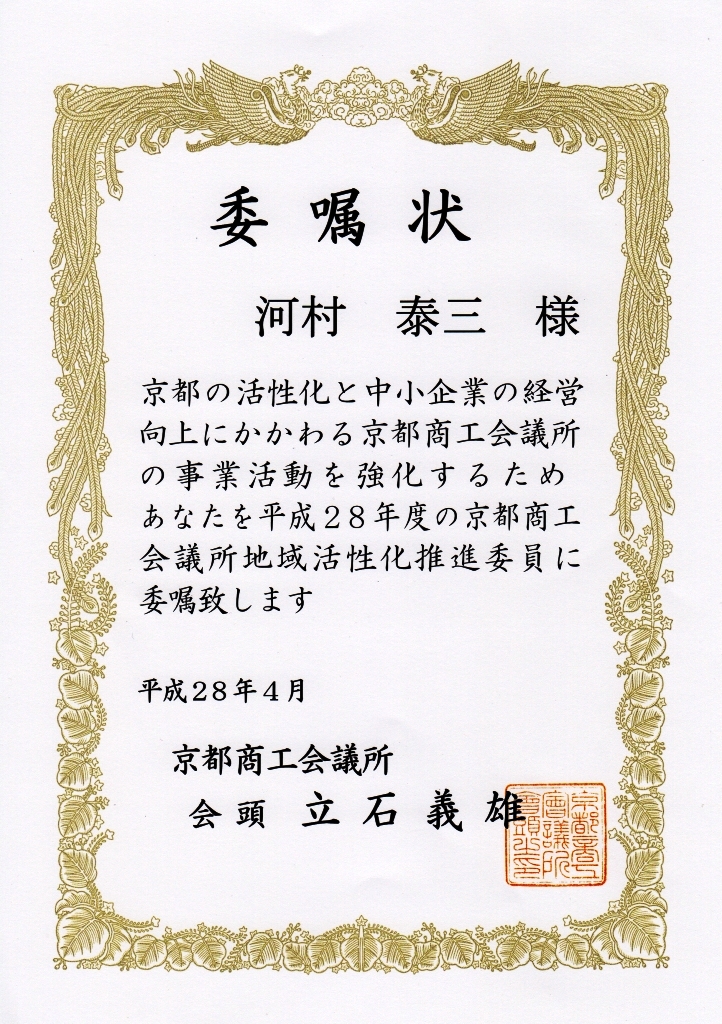 委嘱状
河村 泰三 様
京都の活性化と中小企業の経営
向上にかかわる京都商工会議所
の事業活動を強化するため
あなたを平成28年度の京都商工
会議所地域活性化推進委員に
委嘱致します
平成28年4月
京都商工会議所
会頭 立石義雄
京都商工
會議所
會頭之印